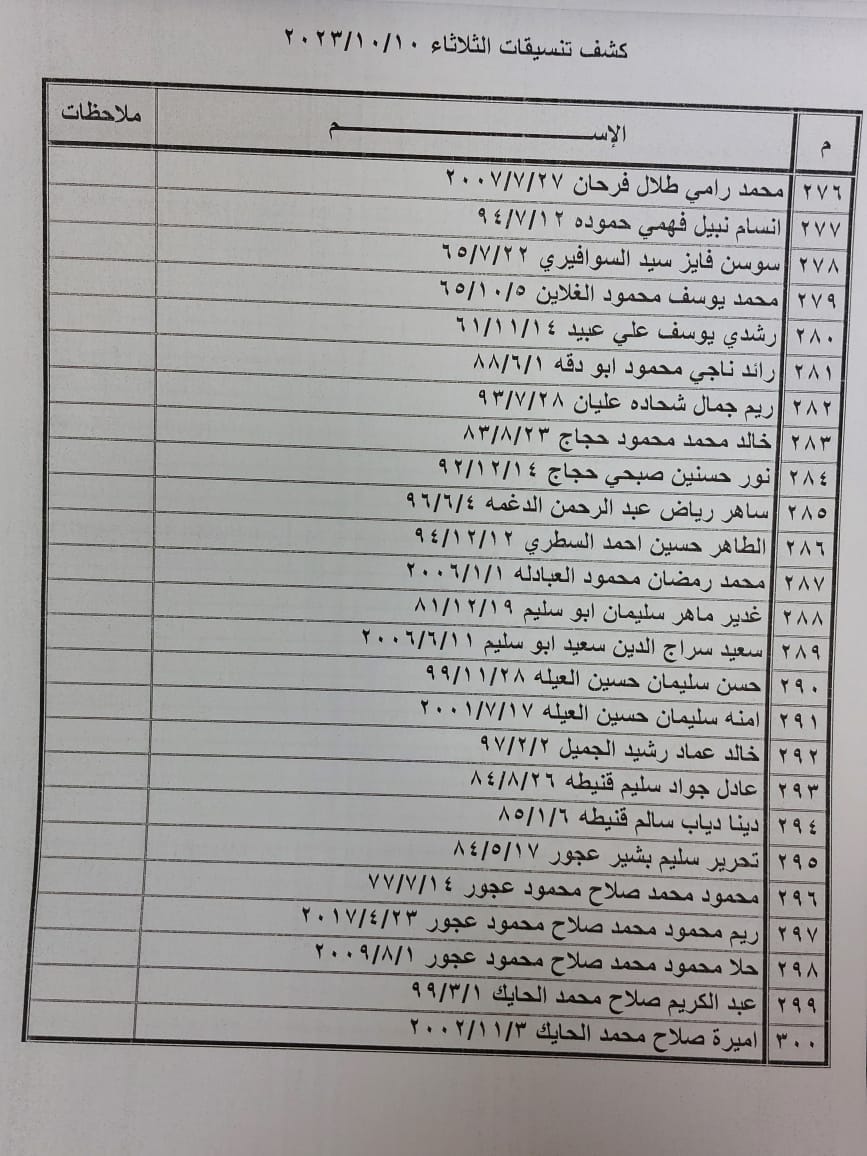 كشف تنسيقات الثلاثاء ٢٠٢٣/١٠/١٠
م الإســـــــــم ملاحظات
٢٧٦ محمد رامي طلال فرحان ٢٠٠٧/٧/٢٧
٢٧٧ انسام نبيل فهمي حموده ٩٤/٧/١٢
٢٧٨ سوسن فايز سيد السوافيري ٦٥/٧/٢٢
٢٧٩ محمد يوسف محمود الغلاين ٦٥/١٠/٥
٢٨٠ رشدي يوسف علي عبيد ٦١/١١/١٤
٢٨١ رائد ناجي محمود ابو دقه ٨٨/٦/١
٢٨٢ ريم جمال شحاده عليان ٩٣/٧/٢٨
٢٨٣ خالد محمد محمود حجاج ٨٣/٨/٢٣
٢٨٤ نور حسنين صبحي حجاج ٩٢/١٢/١٤
٢٨٥ ساهر رياض عبد الرحمن الدغمه ٩٦/٦/٤
٢٨٦ الطاهر حسين احمد السطري ٩٤/١٢/١٢
٢٨٧ محمد رمضان محمود العبادله ٢٠٠٦/١/١
٢٨٨ غدير ماهر سليمان ابو سليم ٨١/١٢/١٩
٢٨٩ سعيد سراج الدين سعيد ابو سليم ٢٠٠٦/٦/١١
٢٩٠ حسن سليمان حسين العيله ٩٩/١١/٢٨
٢٩١ امنه سليمان حسين العيله ٢٠٠١/٧/١٧
٢٩٢ خالد عماد رشيد الجميل ٩٧/٢/٢
٢٩٣ عادل جواد سليم قنيطه ٨٤/٨/٢٦
٢٩٤ دينا دياب سالم قنيطه ٨٥/١/٦
٢٩٥ تحرير سليم بشير عجور ٨٤/٥/١٧
٢٩٦ محمود محمد صلاح محمود عجور ٧٧/٧/١٤
٢٩٧ ريم محمود محمد صلاح محمود عجور ٢٠١٧/٤/٢٣
٢٩٨ حلا محمود محمد صلاح محمود عجور ٢٠٠٩/٨/١
٢٩٩ عبد الكريم صلاح محمد الحايك ٩٩/٣/١
٣٠٠ اميرة صلاح محمد الحايك ٢٠٠٢/١١/٣